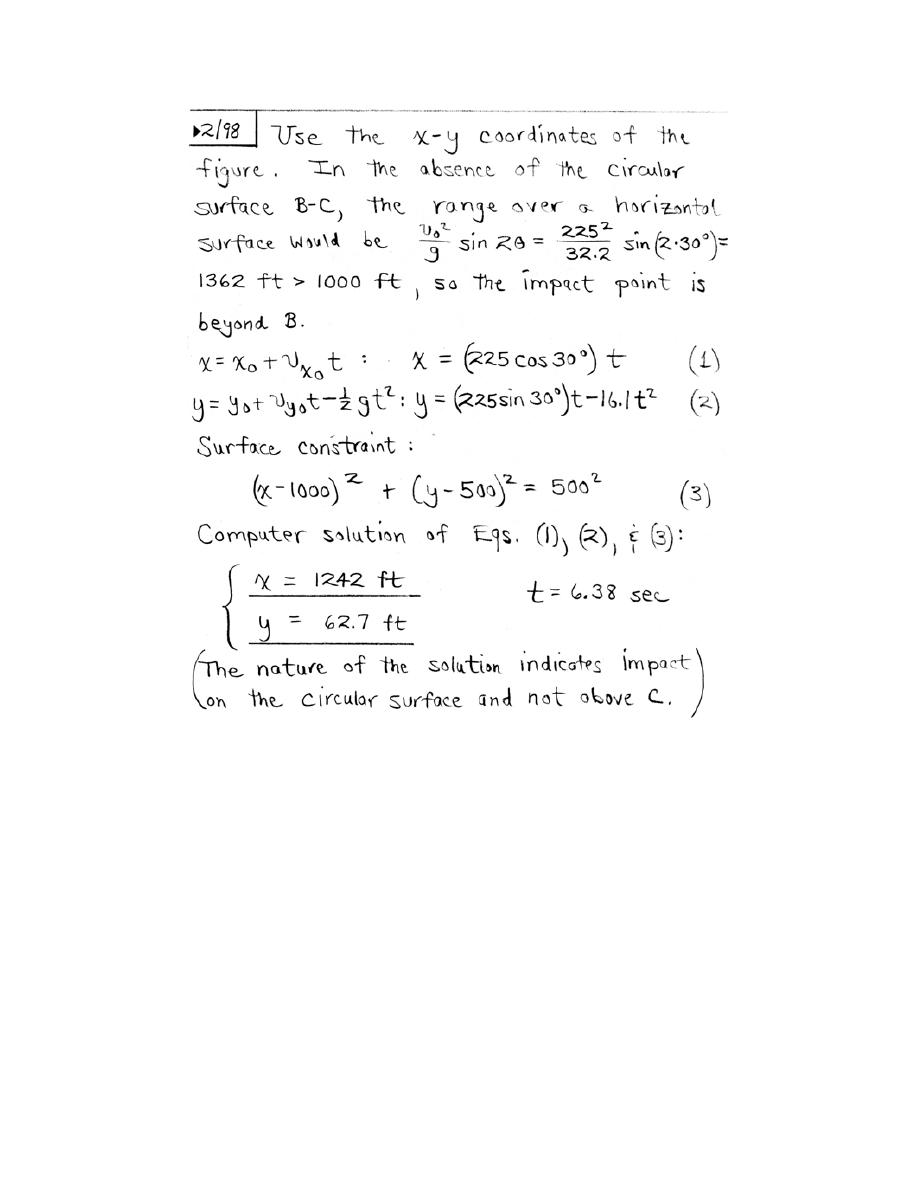 ▸2/98 Use the x-y coordinates of the
figure. In the absence of the circular
surface B-C, the range over a horizontal
surface would be v₀²/g sin 2θ = 225²/32.2 sin(2·30°)=
1362 ft > 1000 ft, so the impact point is
beyond B.
x = x₀ + v_x₀ t : x = (225 cos 30°) t (1)
y = y₀ + v_y₀ t - ½ gt² : y = (225 sin 30°)t - 16.1t² (2)
Surface constraint :
(x-1000)² + (y-500)² = 500² (3)
Computer solution of Eqs. (1), (2), & (3):
x = 1242 ft t = 6.38 sec
y = 62.7 ft
(The nature of the solution indicates impact
on the circular surface and not above C.)